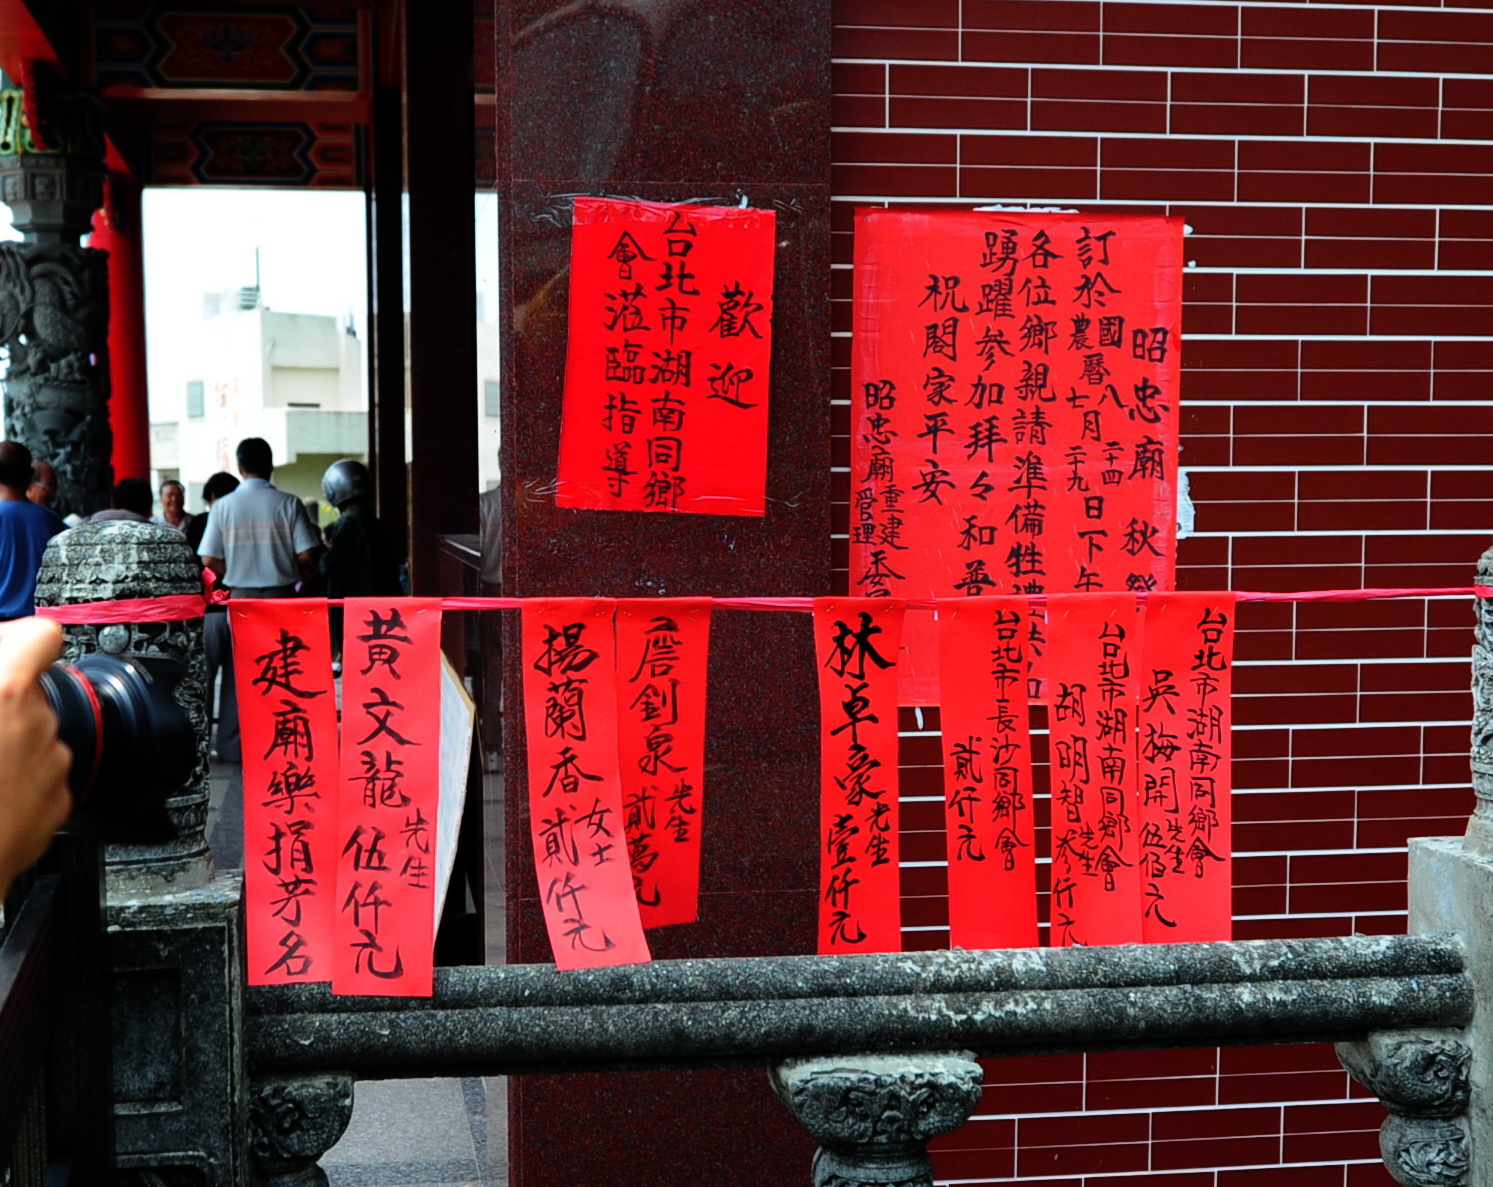 歡迎
台北市湖南同鄉
會蒞臨指導
昭忠廟 秋祭
訂於國曆八月二十四日下午
農曆七月二十九
各位鄉親請準備牲禮
踴躍參加拜々和善
祝閤家平安
昭忠廟重建管理委
建廟樂捐芳名
黃文龍先生伍仟元
楊蘭香女士貳仟元
釗泉先生貳萬元
林卓豪先生壹仟元
台北市長沙同鄉會
貳仟元
台北市湖南同鄉會
胡明智先生參仟元
台北市湖南同鄉會
吳梅開先生伍佰元